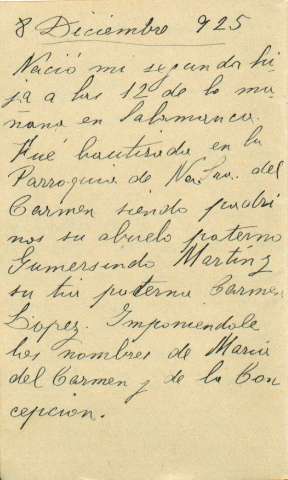 8 Diciembre 925
Nació mi segunda hi
ja a las 12 de la ma
ñana en Salamanca.
Fué bautizada en la
Parroquia de Na. Sra. del
Carmen siendo padri
nos su abuelo paterno
Gumersindo Martín y
su tia paterna Carmen
López. Imponiendole
los nombres de María
del Carmen y de la Con
cepcion.